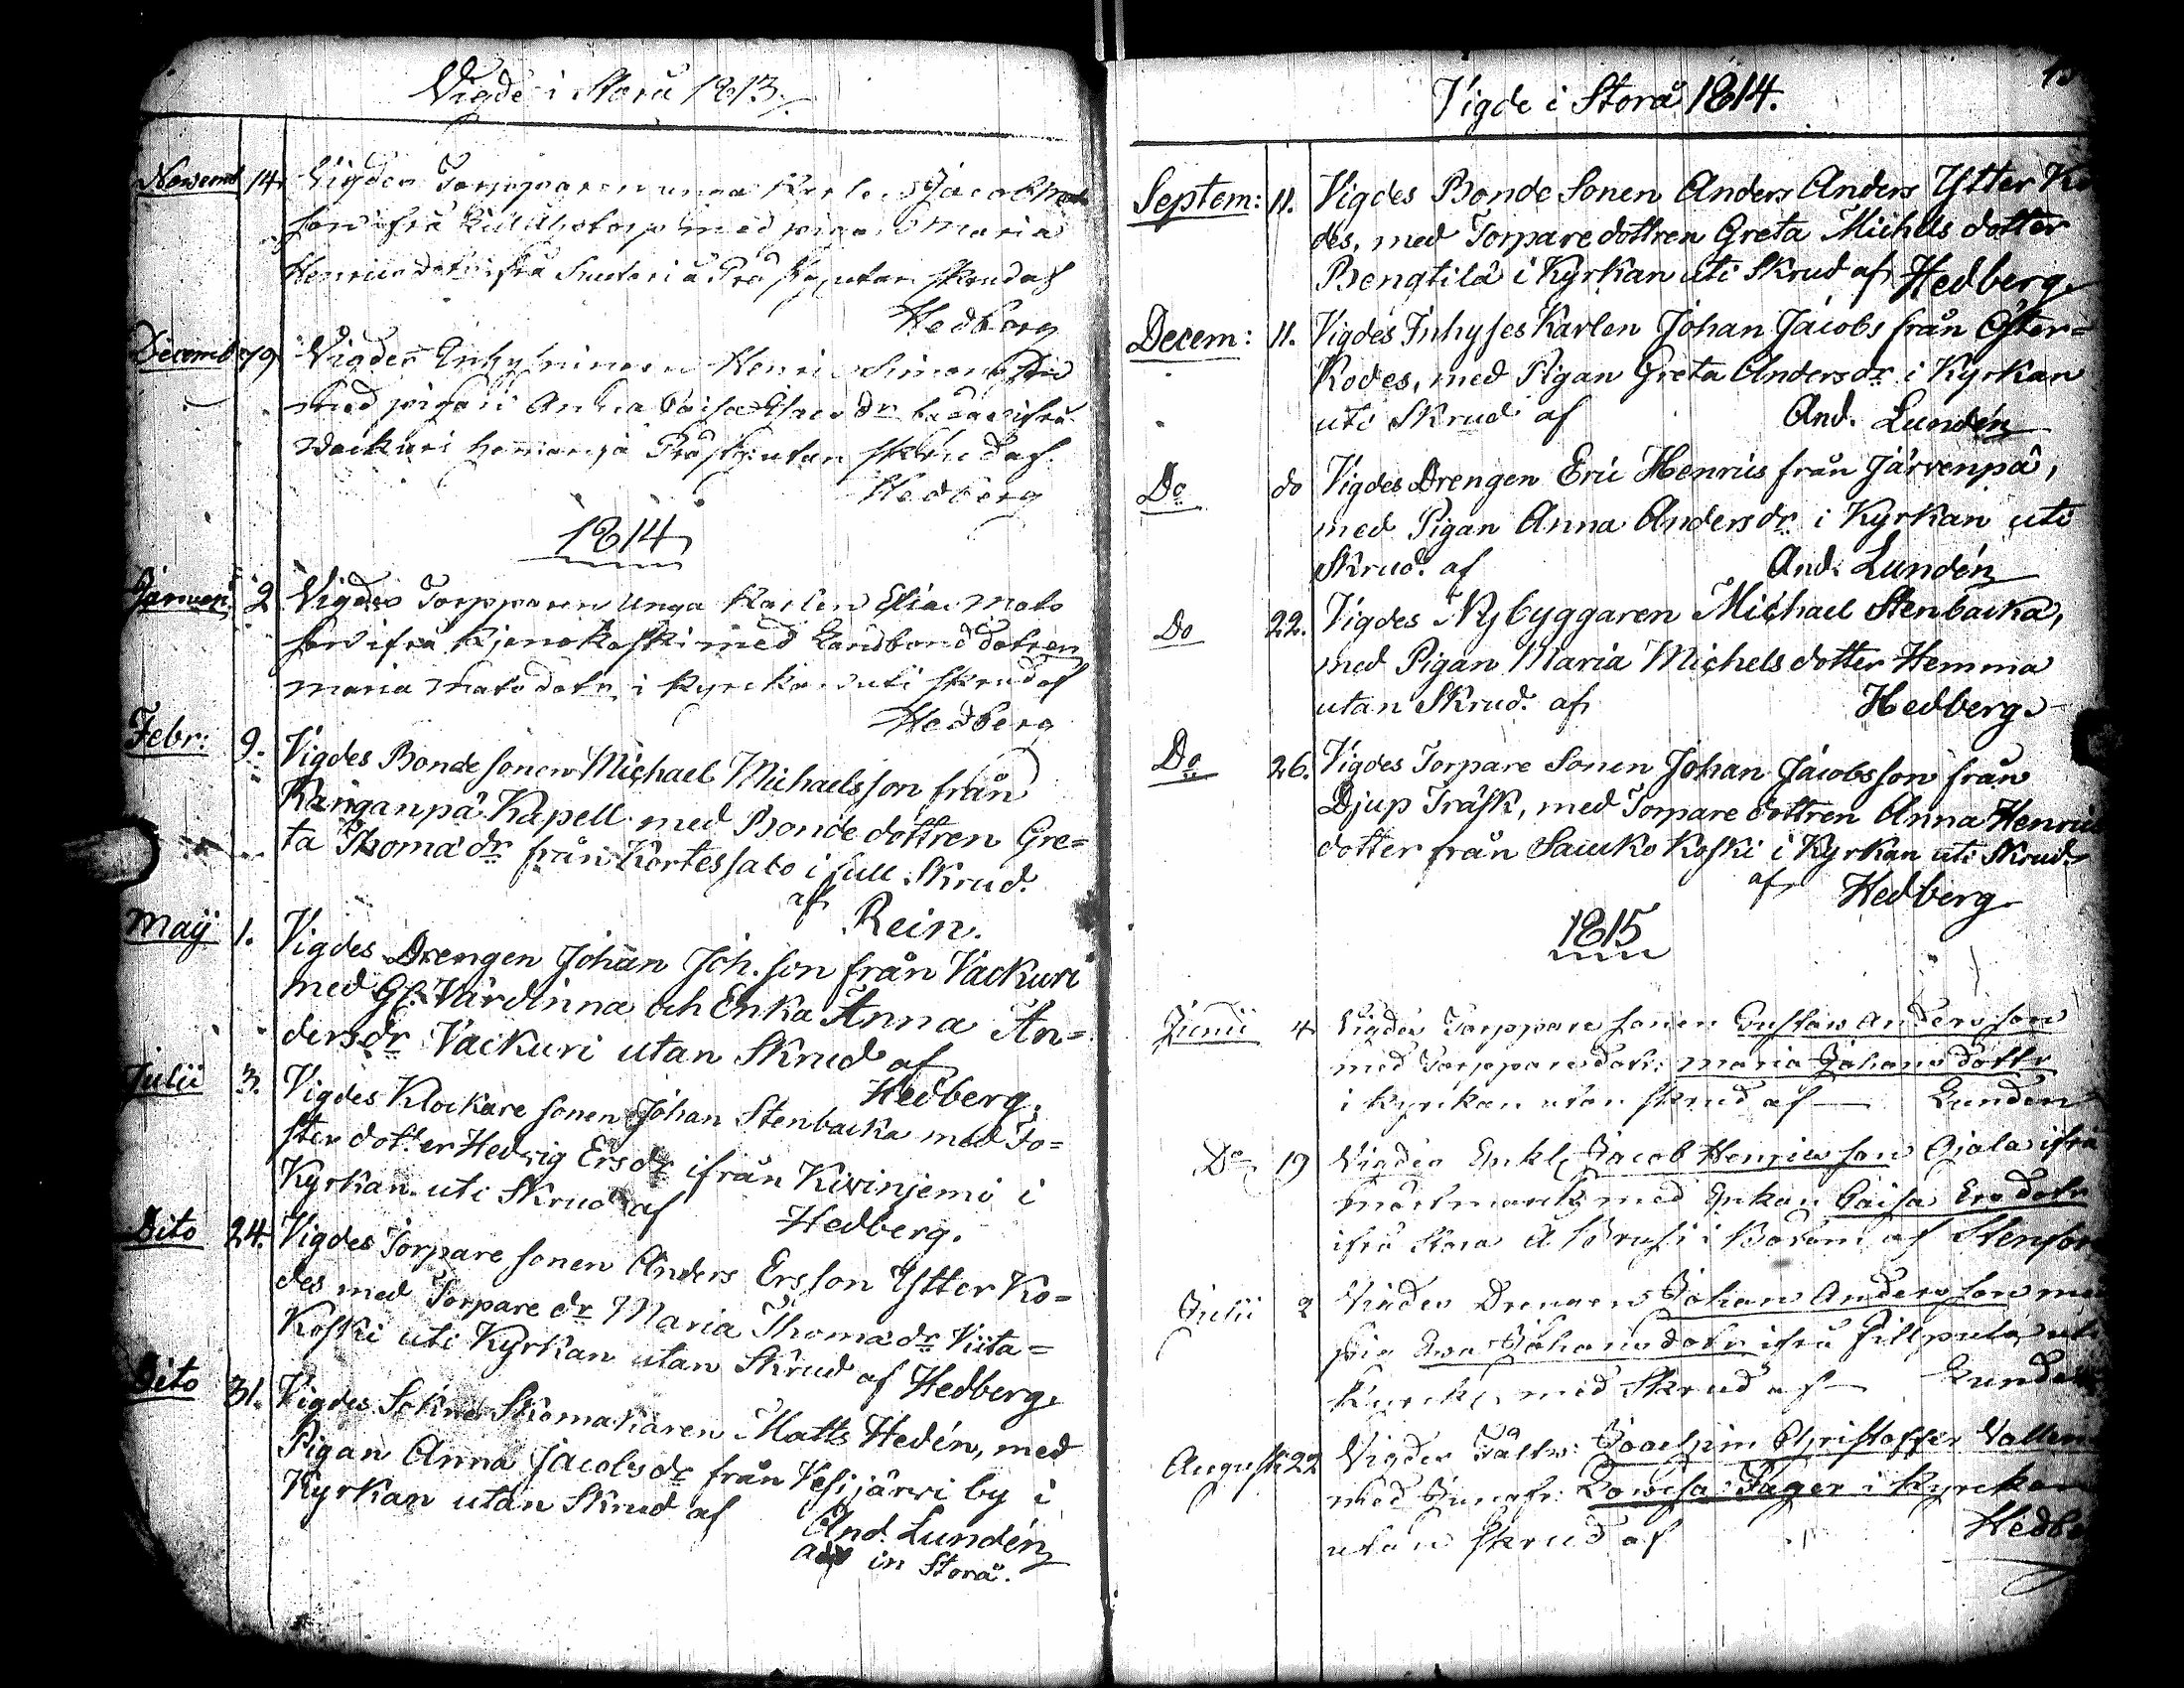 Vigde i Storå 1813
Novemb 14. Vigdes Torpparen unga Karlen Jacob Mats
son ifrå med pigan Maria
Henricsdotr ifrå utan skrud af
Hedberg
Decemb 79 Vigdes Enhysinnen Henric Simonsson
med pigan Anna Caisa Isacs dr ifrå
Wackuri hemma på utan skrud af
Hedberg
1814
Januari 2 Vigdes Torpparen unga Karlen Elias Mats
son ifrå med Landbond dotren
Maria Mats dotr i Kyrckan uti skrud af
Hedberg
Febr: 9. Vigdes Bonde sonen Michael Michaelsson från
Kanganpä Kapell med Bonde dottren Gre=
ta Thoma dr från Kortessalo i full Skrud.
af Rein.
Maij 1. Vigdes Drengen Johan Joh. son från Vackuri
med Gl. Värdinna och Enka Anna An=
dersdr Vackuri utan Skrud af
Hedberg.
Julii 3. Vigdes Klockare sonen Johan Stenbacka med Fo=
ster dotter Hedvig Ersdr ifrån Kivinjemi i
Kyrkan uti Skrud af Hedberg.
Dito 24. Vigdes Torpare sonen Anders Ersson Ytter Ko=
des med Torpare dr Maria Thoma dr Viita=
Koski uti Kyrkan utan Skrud af Hedberg.
Dito 31. Vigdes Sokne Skomakaren Matts Hedén, med
Pigan Anna Jacobsdr från Vesijärvi by i
Kyrkan utan Skrud af
And. Lundén
in Storå.
Vigde i Storå 1814.
Septem: 11. Vigdes Bonde Sonen Anders Anders Ytter Ko
des, med Torpare dottren Greta Michels dotter
Bengtilä i Kyrkan uti Skrud af Hedberg
Decem: 11. Vigdes Inhyses Karlen Johan Jacobs från Öfter=
Kodes, med Pigan Greta Andersdr i Kyrkan
uti Skrud af And. Lundén
Do do Vigdes Drengen Eric Henrics från Järvenpä,
med Pigan Anna Andersdr i Kyrkan uti
Skrud. af And. Lundén
Do 22. Vigdes Nybyggaren Michael Stenbacka,
med Pigan Maria Michels dotter Hemma
utan Skrud. af Hedberg.
Do 26. Vigdes Torpare Sonen Johan Jacobsson från
Djup Träsk, med Torpare dottren Anna Henrics
dotter från Saiuko Koski i Kyrkan uti Skrud.
af Hedberg
1815
Junii 4 Vigdes Torppare sonen Gustaw Andersson
med Torpparedotr: Maria Johans dottr
i Kyrckan utan skrud af Lunden
Do 19 Vigdes Enkl. Jacob Henricsson Ojala ifrå
med Enkan Caisa Ers dotr
ifrå Stora i af Stenfor
Julii 2 Vigdes Drengen Johan Andersson med
pig Ewa Johans dotr ifrå Filppula uti
Kyrck. med Skrud af Lunden
Augusti 22 Vigdes Fältw: Joachim Christoffer
med Jungfr: Lowisa Fager i Kyrckan
utan skrud af Hedbe